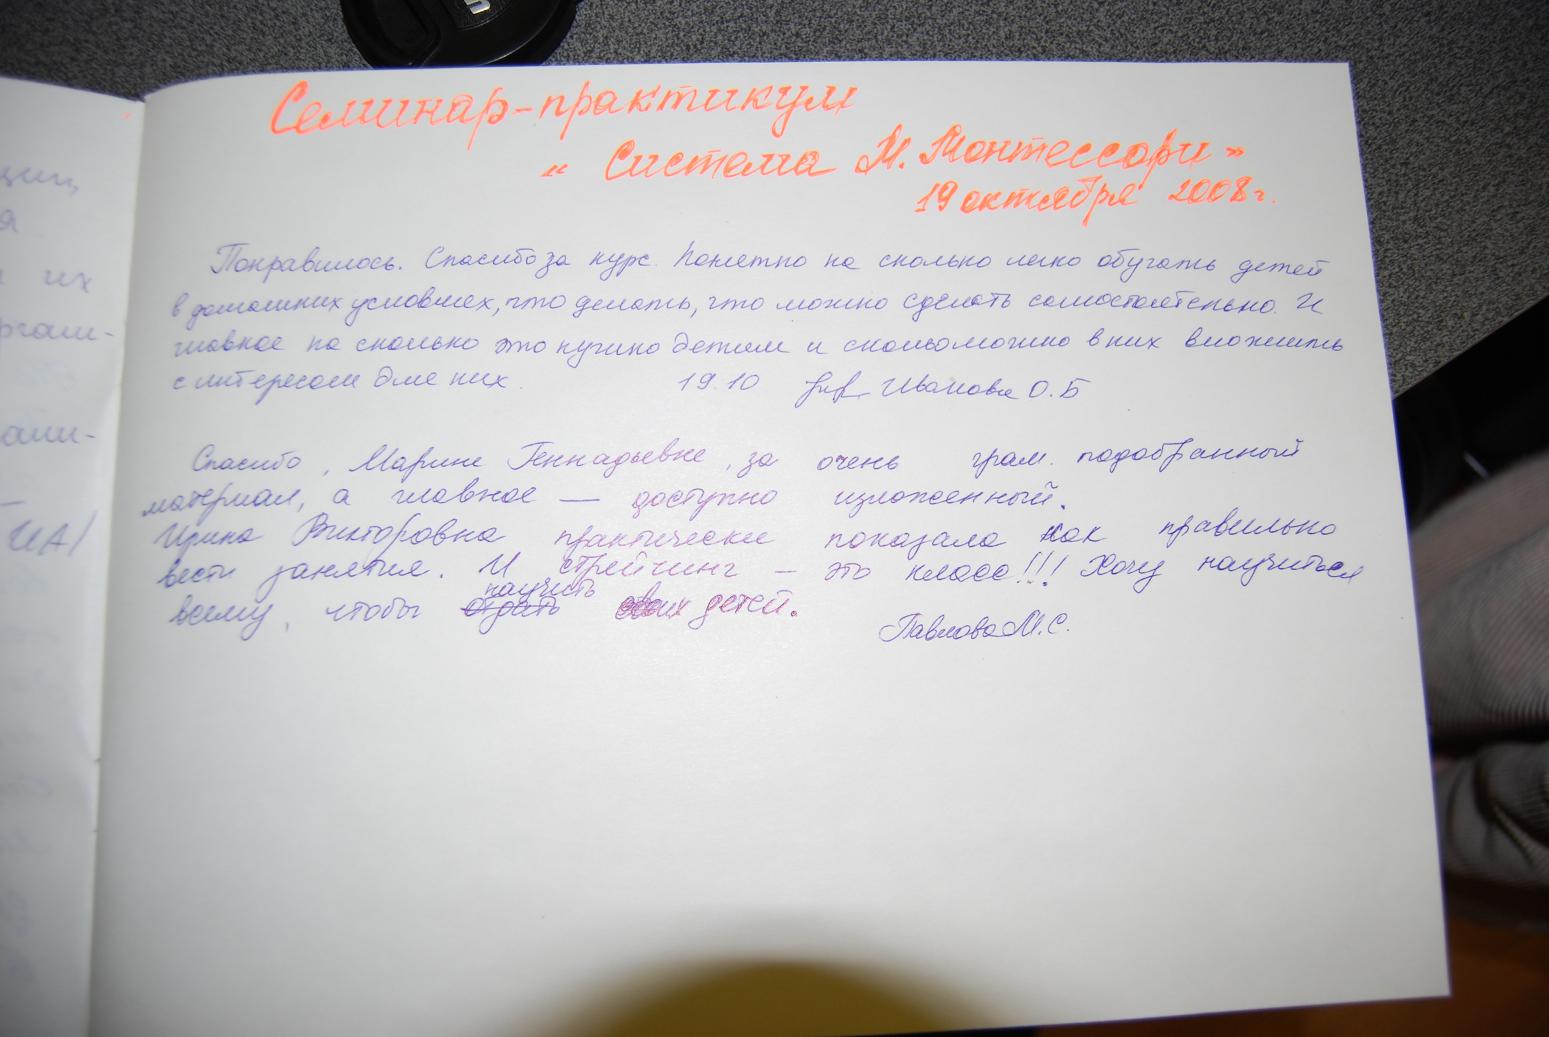 Семинар-практикум
"Система М. Монтессори"
19 октября 2008г.
Понравилось. Спасибо за курс. Понятно на сколько легко обучать детей
в домашних условиях, что делать, что можно сделать самостоятельно. И
главное на сколько это нужно детям и скольо можно в них вложить
с интересом для них. 19.10 Иванова О.Б
Спасибо, Марине Геннадьевне, за очень грам. подобранный
материал, а главное — доступно изложенный.
Ирина Викторовна практически показала как правильно
вести занятия. И стрейчинг – это класс!!! Хочу научиться
всему, чтобы научить своих детей.
Павлова М.С.